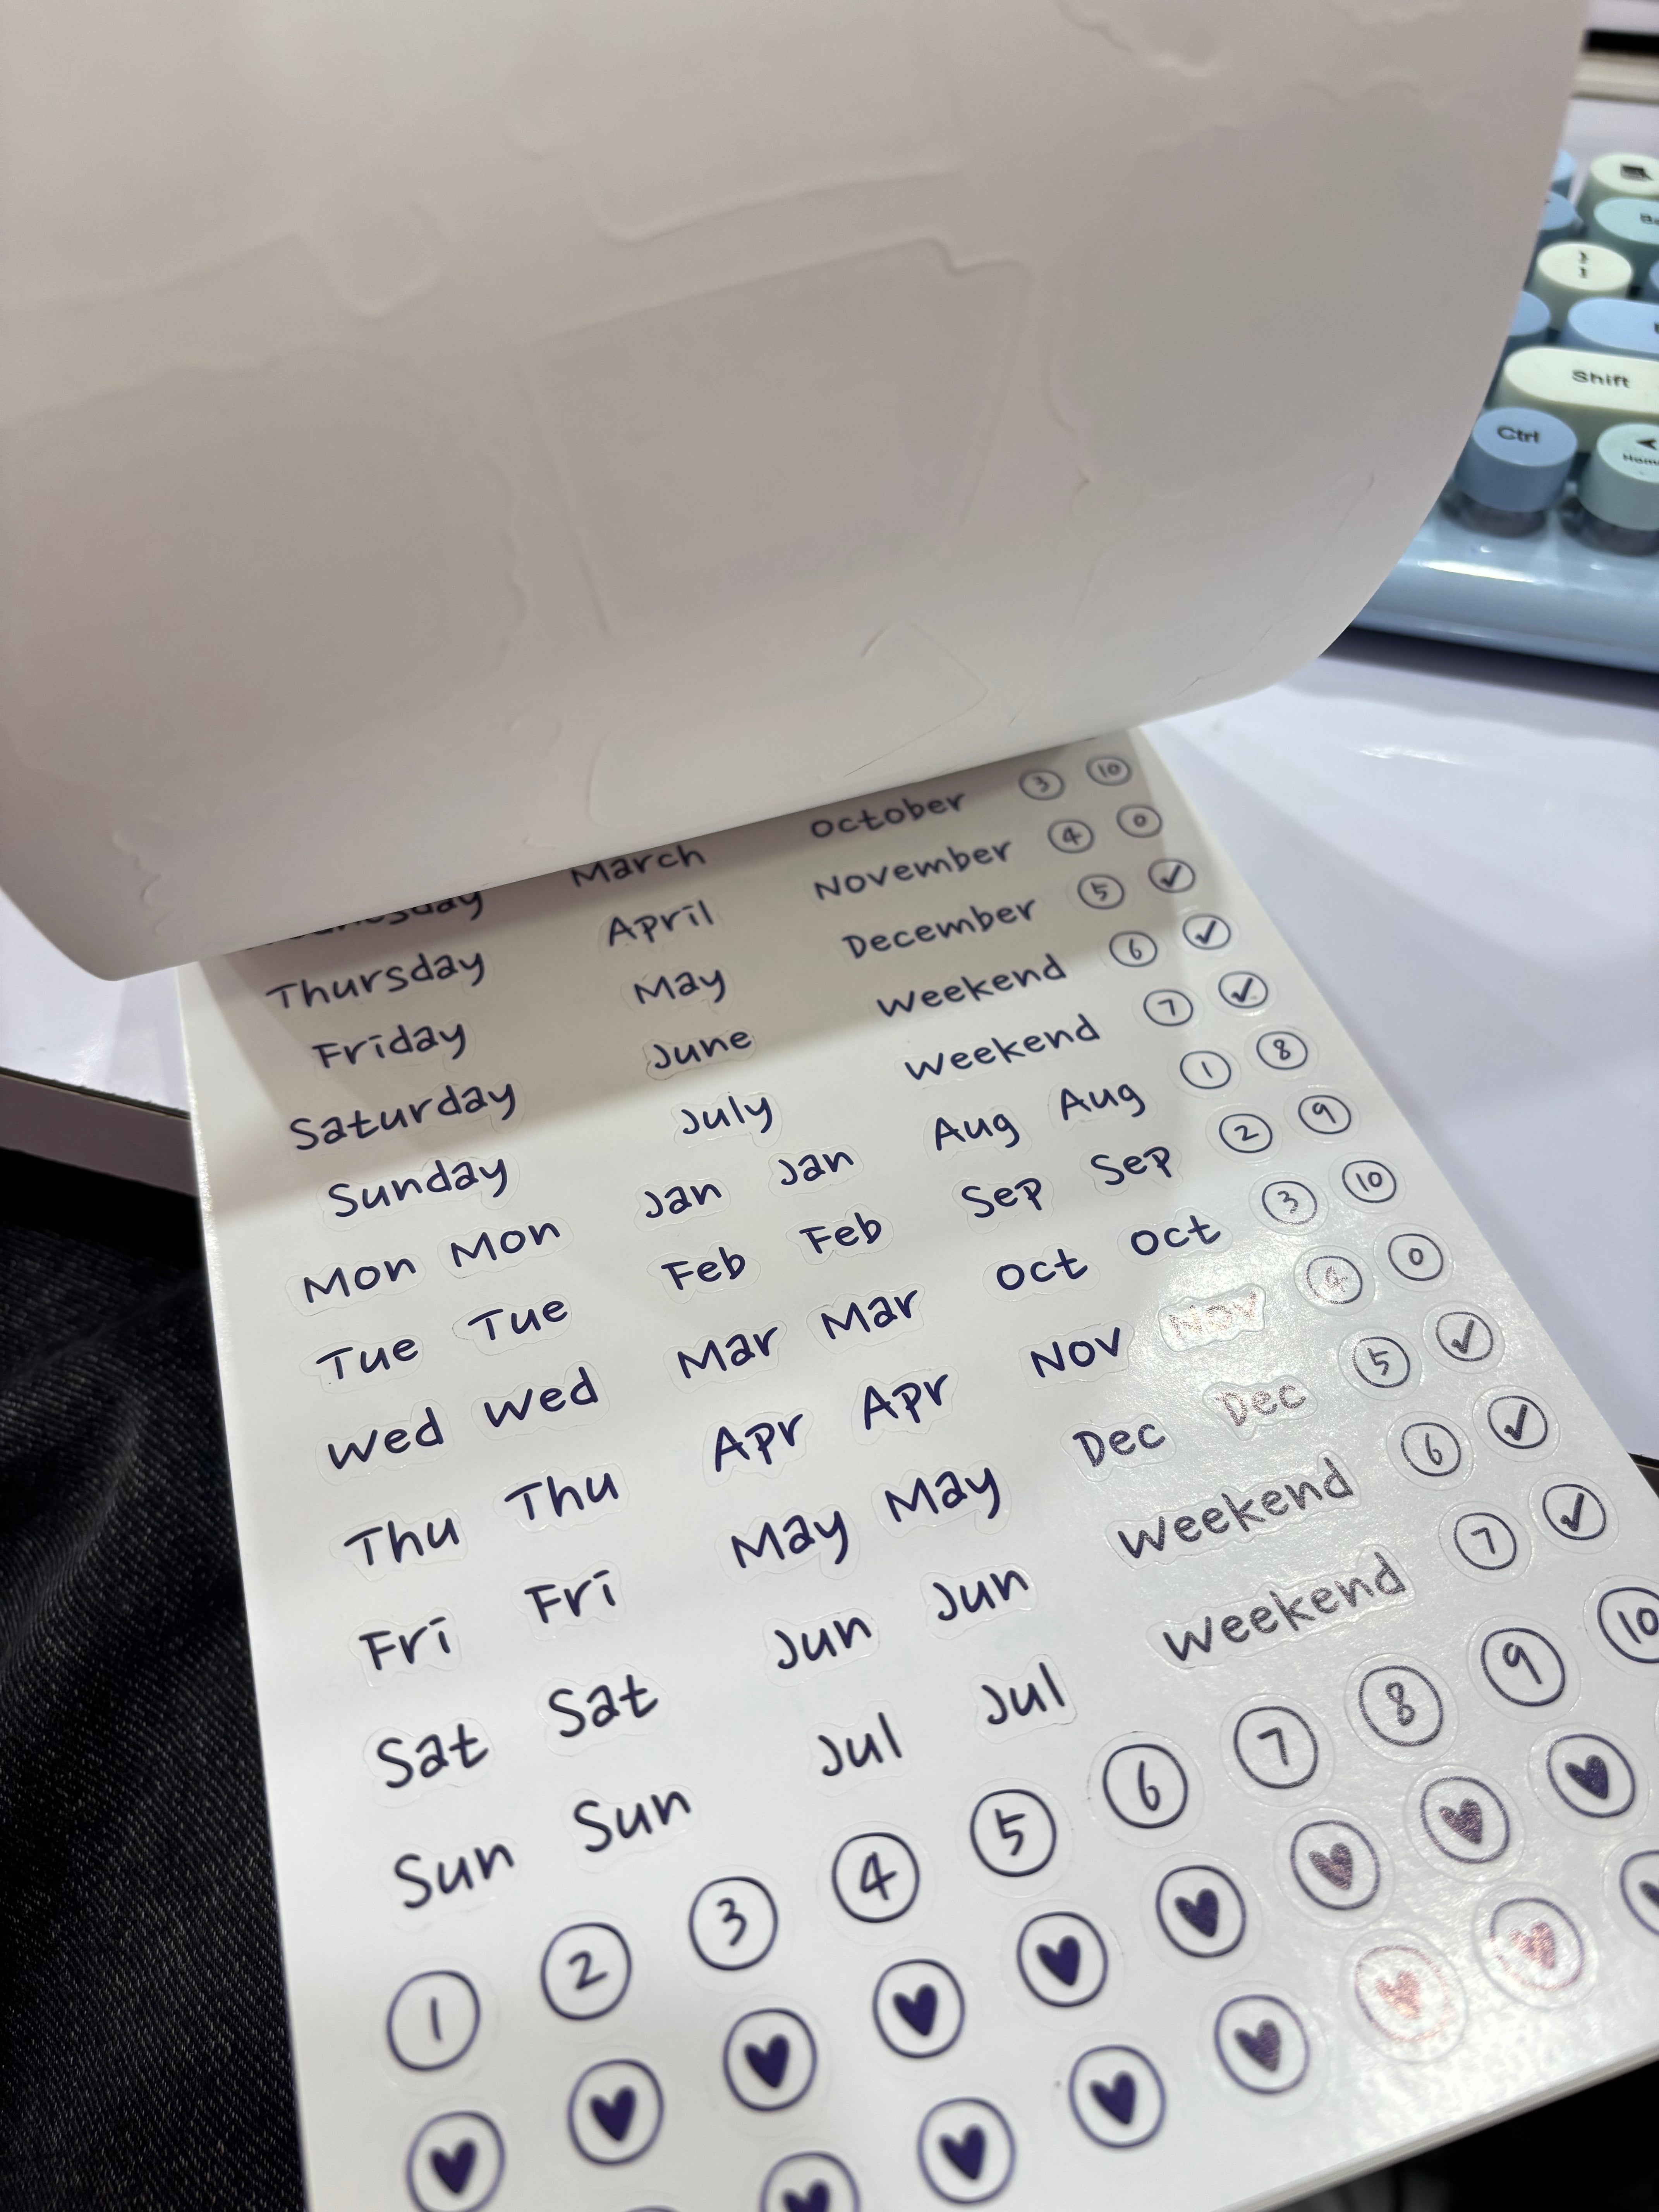 March October 3 10
Thursday April November 4 0
Friday May December 5 ✓
Saturday June Weekend 6 ✓
Sunday July Weekend 7 ✓
Mon Mon Jan Jan Aug Aug 1 8
Tue Tue Feb Feb Sep Sep 2 9
Wed Wed Mar Mar Oct Oct 3 10
Thu Thu Apr Apr Nov Nov 4 0
Fri Fri May May Dec Dec 5 ✓
Sat Sat Jun Jun Weekend 6 ✓
Sun Sun Jul Jul Weekend 7 ✓
1 2 3 4 5 6 7 8 9 10
Shift
Ctrl